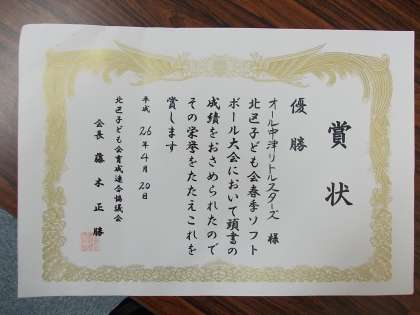 賞状
優勝
オール中津リトルスターズ 様
北区子ども会春季ソフト
ボール大会において頭書の
成績をおさめられたので
その栄誉をたたえこれを
賞します
平成 26年4月20日
北区子ども会育成連合協議会
会長 藤本正勝